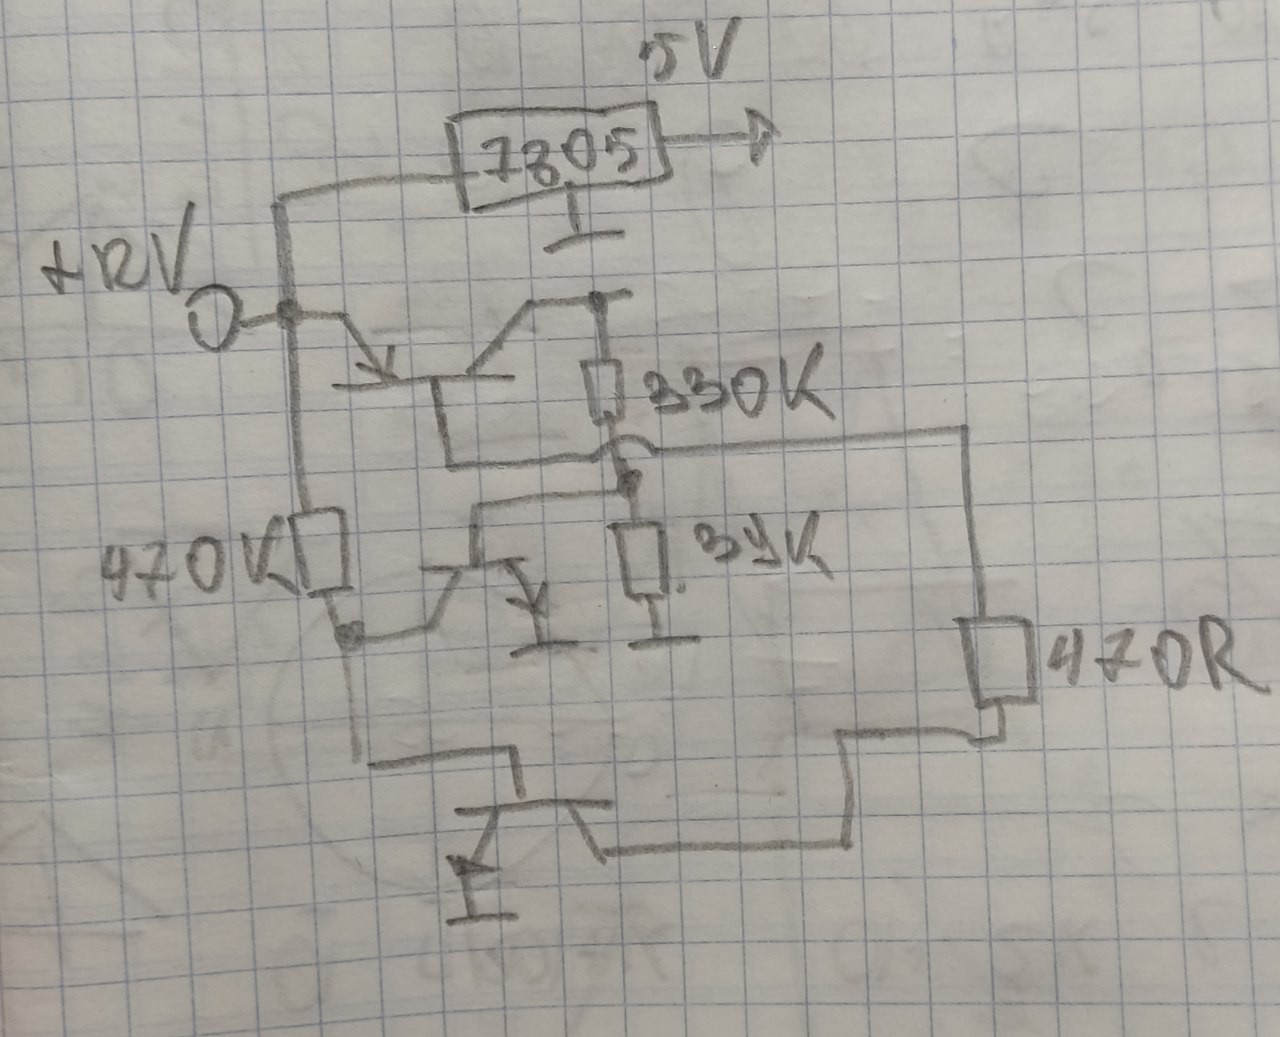 5V
7805
+12V
330K
470K
39K
470R